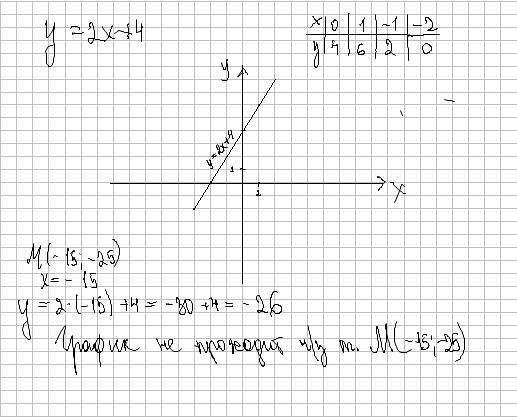 y = 2x+4
x 0 1 -1 -2
y 4 6 2 0
y
y=2x+4
1
1
x
M(-15; -25)
x = -15
y = 2·(-15)+4 = -30+4 = -26
График не проходит ч/у т. M(-15; -25)